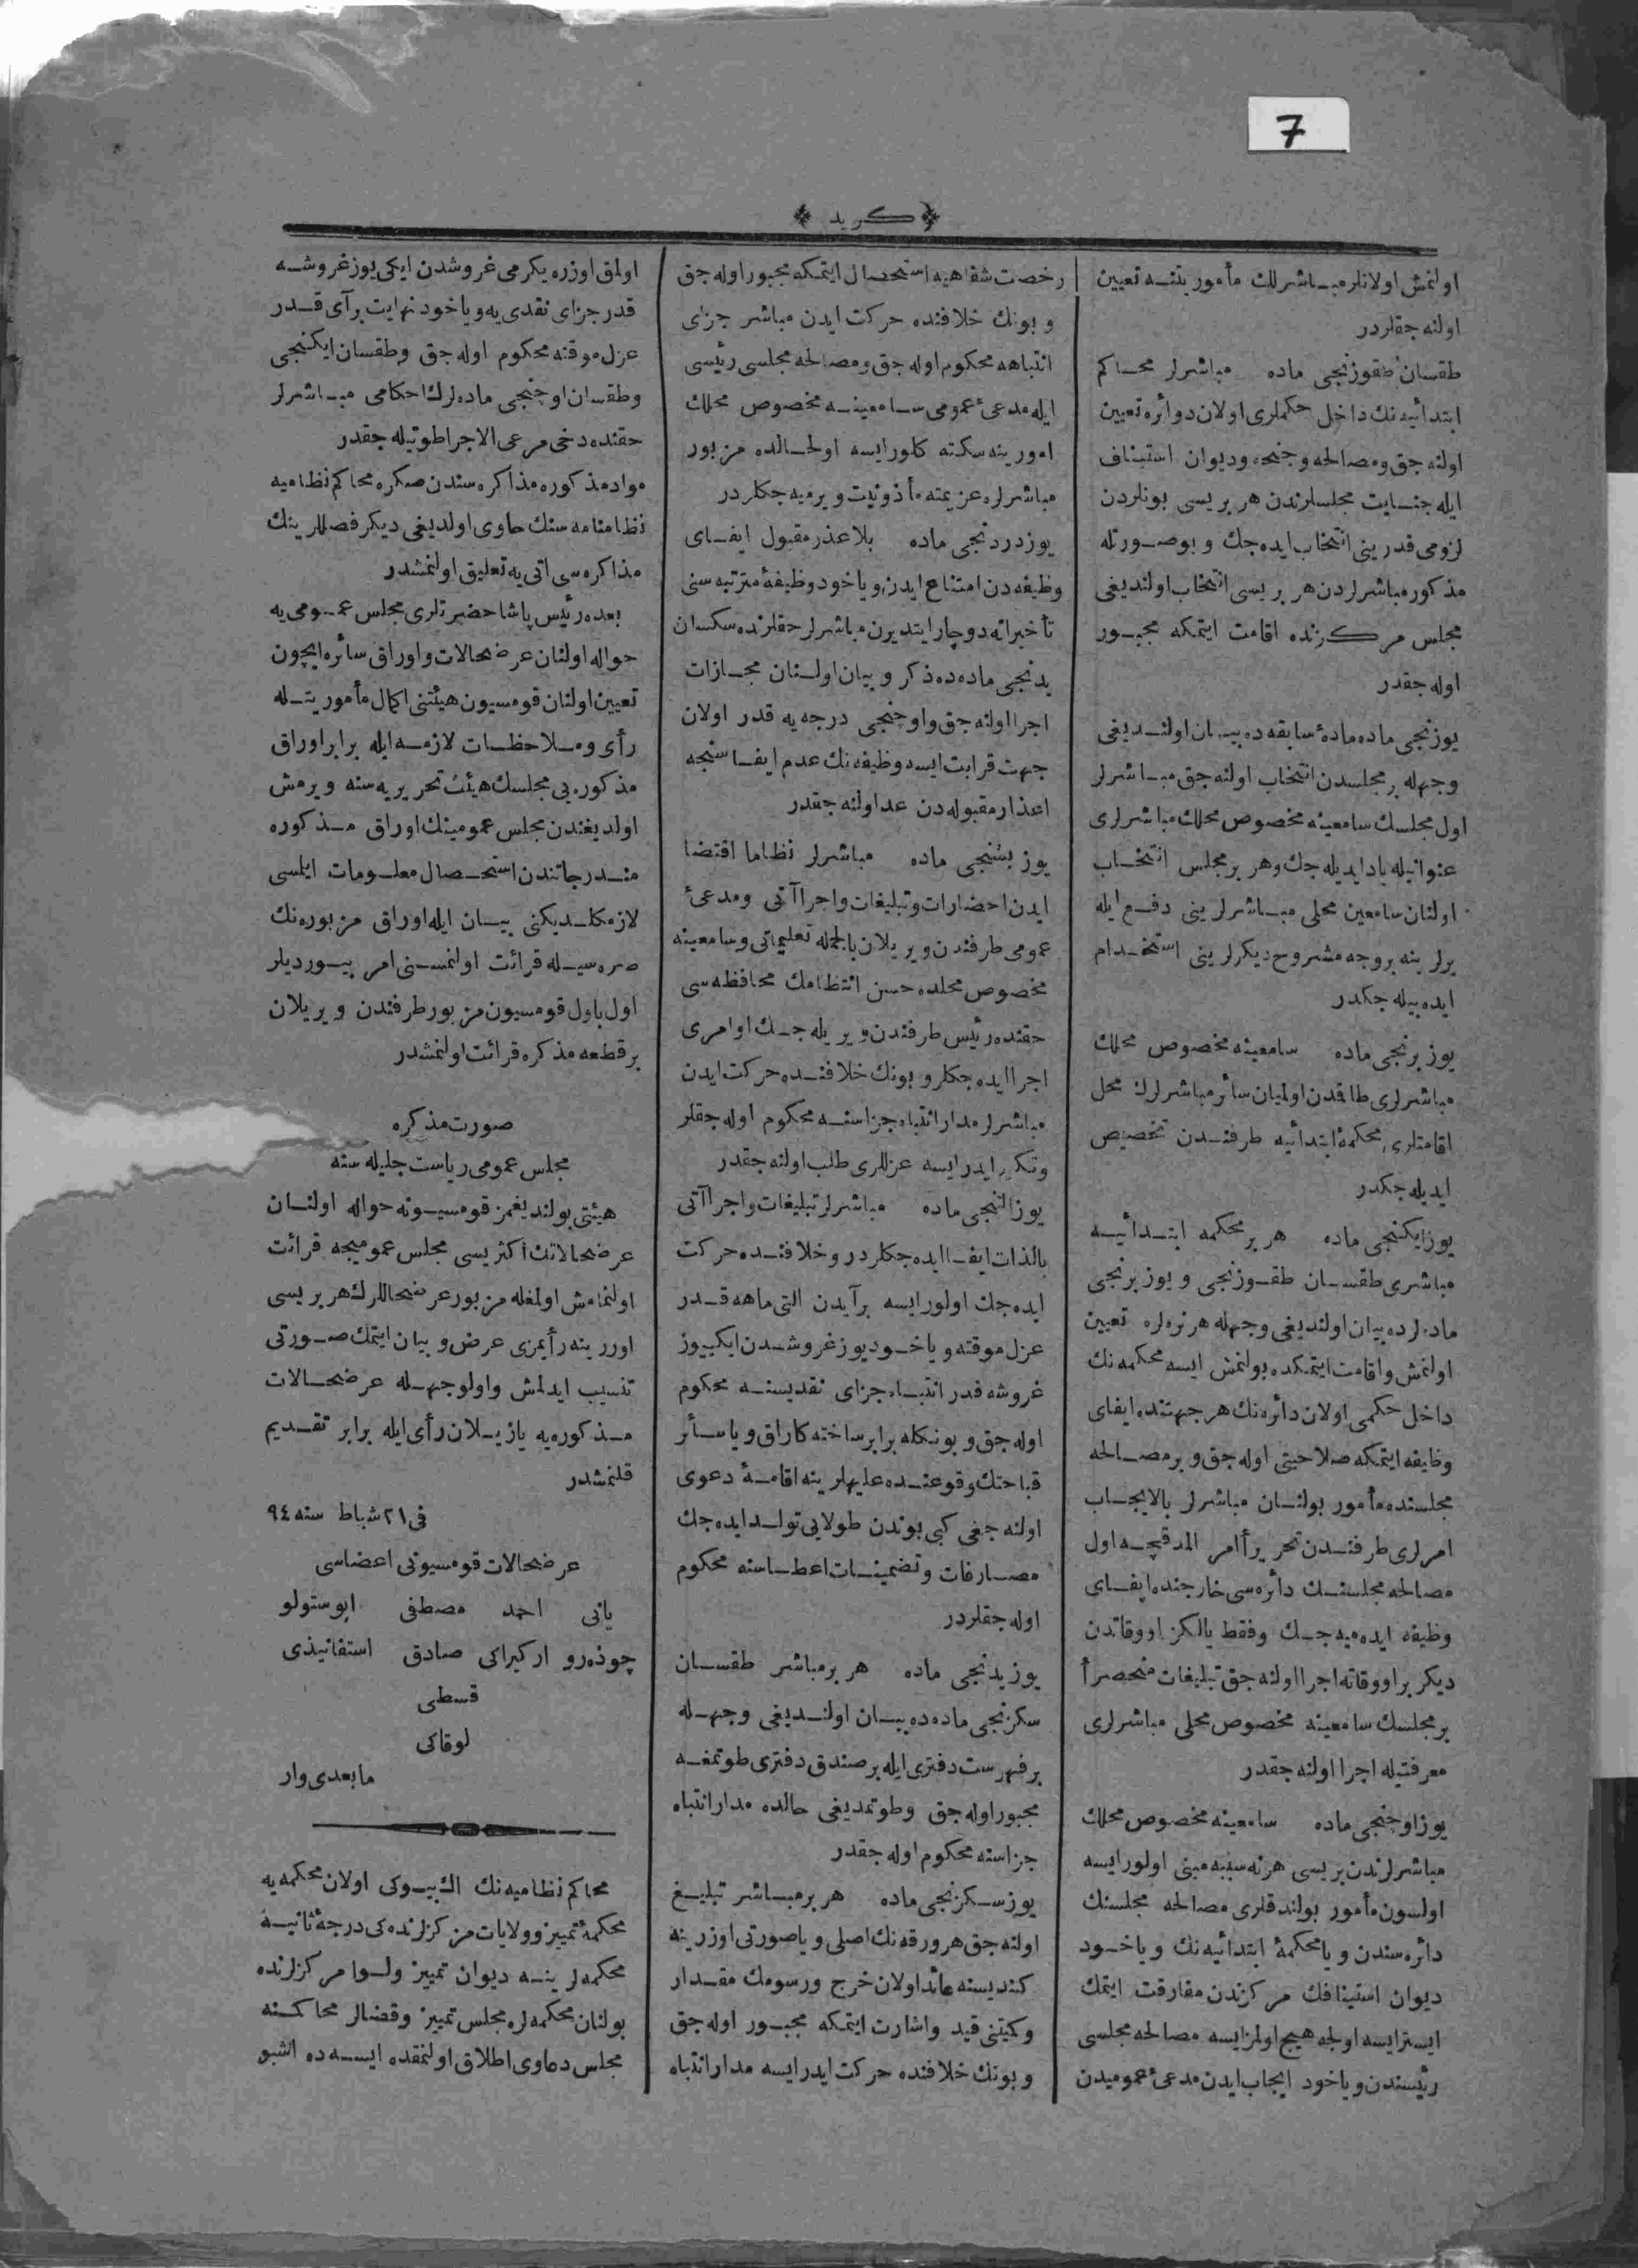 7
كريد
اولنمش اولانلر مباشرلك مأموريتنه تعيين
اولنه جقلردر
طقسان طقوزنجى ماده مباشرلر محاكم
ابتدائيه نك داخل حكملرى اولان دوائره تعيين
اولنه جق ومصالحه وجنحه وديوان استيناف
ايله جنايت مجلسلرندن هر بريسى بونلردن
لزومى قدرينى انتخاب ايده جك و بوصورتله
مذكور مباشرلردن هر بريسى انتخاب اولنديغى
مجلس مركزنده اقامت ايتمكه مجبور
اوله جقدر
يوزنجى ماده مادهٔ سابقه ده بيان اولنديغى
وجهله بر مجلسدن انتخاب اولنه جق مباشرلر
اول مجلسك سامعينه مخصوص محلك مباشرلرى
عنوانيله ياد ايديله جك وهر بر مجلس انتخاب
اولنان سامعين محلى مباشرلرينى دفع ايله
يرلرينه بروجه مشروح ديكرلرينى استخدام
ايده بيله جكدر
يوز برنجى ماده سامعينه مخصوص محلك
مباشرلرى طاقدن اولميان سائر مباشرلرك محل
اقامتلرى محكمهٔ ابتدائيه طرفندن تخصيص
ايديله جكدر
يوز ايكنجى ماده هر بر محكمه ابتدائيه
مباشرى طقسان طقوزنجى و يوز برنجى
ماده لرده بيان اولنديغى وجهله هر نره لره تعيين
اولنمش واقامت ايتمكده بولنمش ايسه محكمه نك
داخل حكمى اولان دائره نك هر جهتنده ايفاى
وظيفه ايتمكه صلاحيتى اوله جق و بر مصالحه
مجلسنده مأمور بولنان مباشرلر بالايجاب
امرلرى طرفندن تحريرأ امر المدقچه اول
مصالحه مجلسنك دائره سى خارجنده ايفاى
وظيفه ايده ميه جك وفقط يالكز اووقاتدن
ديكر بر اووقاته اجرا اولنه جق تبليغات منحصرأ
بر مجلسك سامعينه مخصوص محلى مباشرلرى
معرفتيله اجرا اولنه جقدر
يوز اوچنجى ماده سامعينه مخصوص محلك
مباشرلرندن بريسى هر نه سببه مبنى اولور ايسه
اولسون مأمور بولندقلرى مصالحه مجلسنك
دائره سندن و يا محكمهٔ ابتدائيه نك و ياخود
ديوان استينافك مركزندن مفارقت ايتمك
ايستر ايسه اولجه هيچ اولمز ايسه مصالحه مجلسى
رئيسندن و ياخود ايجاب ايدن مدعىٔ عموميدن
رخصت شفاهيه استحصال ايتمكه مجبور اوله جق
و بونك خلافنده حركت ايدن مباشر جزاى
انتباهه محكوم اوله جق ومصالحه مجلسى رئيسى
ايله مدعىٔ عمومى سامعينه مخصوص محلك
امورينه سكته كلور ايسه اولحالده مزبور
مباشرلره عزيمته مأذونيت و يرميه جكلردر
يوز دردنجى ماده بلا عذر مقبول ايفاى
وظيفه دن امتناع ايدن و ياخود وظيفهٔ مترتبه سنى
تأخيراته دوچار ايتديرن مباشرلر حقلرنده سكسان
يدنجى ماده ده ذكر و بيان اولنان مجازات
اجرا اولنه جق واوچنجى درجه يه قدر اولان
جهت قرابت ايسه وظيفه نك عدم ايفاسنجه
اعذار مقبوله دن عد اولنه جقدر
يوز بشنجى ماده مباشرلر نظاما اقتضا
ايدن احضارات وتبليغات واجراآتى ومدعىٔ
عمومى طرفندن و يريلان بالجمله تعليماتى وسامعينه
مخصوص محلده حسن انتظامك محافظه سى
حقنده رئيس طرفندن و يريله جك اوامرى
اجرا ايده جكلر و بونك خلافنده حركت ايدن
مباشرلر مدار انتباه جزاسنه محكوم اوله جقلر
وتكرر ايدر ايسه عزللرى طلب اولنه جقدر
يوز التنجى ماده مباشرلر تبليغات واجراآتى
بالذات ايفا ايده جكلردر وخلافنده حركت
ايده جك اولور ايسه برآيدن التى ماهه قدر
عزل موقته و ياخود يوز غروشدن ايكييوز
غروشه قدر انتباه جزاى نقديسنه محكوم
اوله جق و بونكله برابر ساخته كارلق و يا سائر
قباحتك وقوعنده عليهلرينه اقامهٔ دعوى
اولنه جغى كبى بوندن طولايى تولد ايده جك
مصارفات وتضمينات اعطاسنه محكوم
اوله جقلردر
يوز يدنجى ماده هر بر مباشر طقسان
سكزنجى ماده ده بيان اولنديغى وجهله
بر فهرست دفترى ايله بر صندق دفترى طوتمغه
مجبور اوله جق وطوتمديغى حالده مدار انتباه
جزاسنه محكوم اوله جقدر
يوز سكزنجى ماده هر بر مباشر تبليغ
اولنه جق هر ورقه نك اصلى و يا صورتى اوزرينه
كنديسنه عائد اولان خرج ورسومك مقدار
وكميتنى قيد واشارت ايتمكه مجبور اوله جق
و بونك خلافنده حركت ايدر ايسه مدار انتباه
اولمق اوزره يكرمى غروشدن ايكى يوز غروشه
قدر جزاى نقدى يه و ياخود نهايت برآى قدر
عزل موقته محكوم اوله جق وطقسان ايكنجى
وطقسان اوچنجى ماده لرك احكامى مباشرلر
حقنده دخى مرعى الاجرا طوتيله جقدر
مواد مذكوره مذاكره سندن صكره محاكم نظاميه
نظامنامه سنك حاوى اولديغى ديكر فصللرينك
مذاكره سى اتى يه تعليق اولنمشدر
بعده رئيس پاشا حضرتلرى مجلس عمومى يه
حواله اولنان عرضحالات واوراق سائره ايچون
تعيين اولنان قومسيون هيئتنى اكمال مأموريتله
رأى وملاحظات لازمه ايله برابر اوراق
مذكوره يى مجلسك هيئت تحريريه سنه و يرمش
اولديغندن مجلس عمومينك اوراق مذكوره
مندرجاتندن استحصال معلومات ايلسى
لازمكلديكنى بيان ايله اوراق مزبوره نك
صره سيله قرائت اولنمسنى امر بيورديلر
اول باول قومسيون مزبور طرفندن و يريلان
بر قطعه مذكره قرائت اولنمشدر
صورت مذكره
مجلس عمومى رياست جليله سنه
هيئتى بولنديغمز قومسيونه حواله اولنان
عرضحالاتك اكثريسى مجلس عموميجه قرائت
اولنمامش اولمغله مزبور عرضحاللرك هر بريسى
اوررينه رأيمزى عرض و بيان ايتمك صورتى
تنسيب ايدلمش واولوجهله عرضحالات
مذكوره يه يازيلان رأى ايله برابر تقديم
قلنمشدر
فى ٢١ شباط سنه ٩٤
عرضحالات قومسيونى اعضاسى
يانى احمد مصطفى ابوستولو
چوذه رو اركيراكى صادق استفانيذى
قسطى
لوقاكى
مابعدى وار
محاكم نظاميه نك الك بيوكى اولان محكمه يه
محكمهٔ تمييز وولايات مركزلرنده كى درجهٔ ثانيه
محكمه لرينه ديوان تمييز ولوا مركزلرنده
بولنان محكمه لره مجلس تمييز وقضالر محاكمنه
مجلس دعاوى اطلاق اولنمقده ايسه ده اشبو